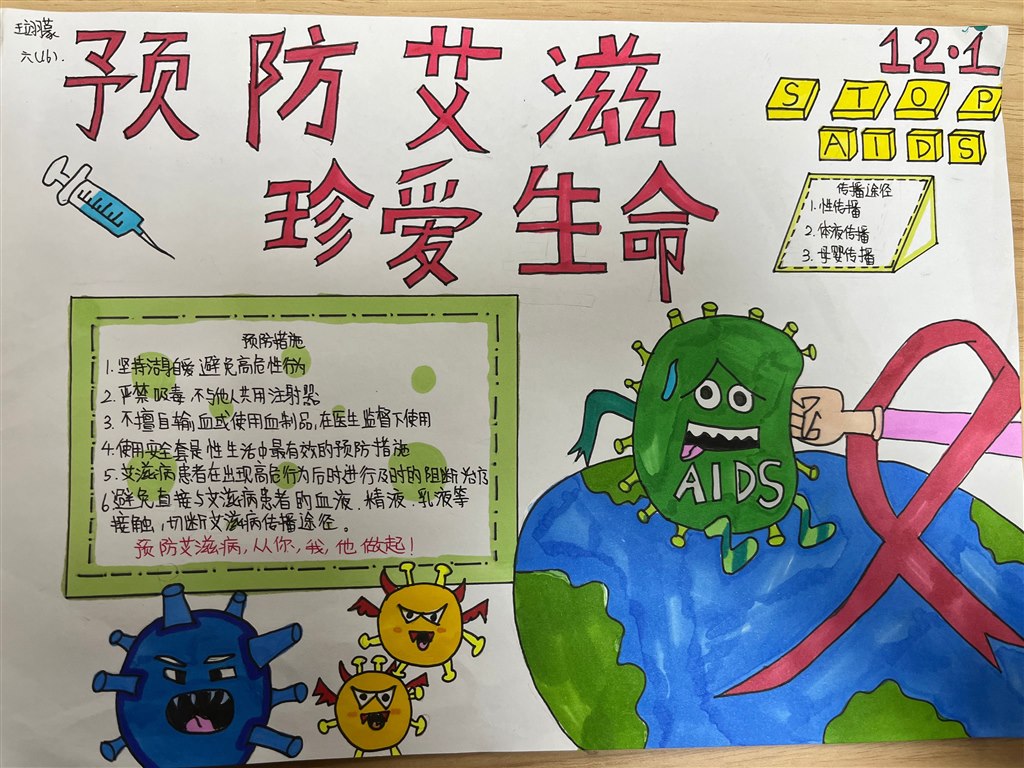 六(16).
预防艾滋
珍爱生命
12·1
STOP
AIDS
传播途径
1.性传播
2.体液传播
3.母婴传播
预防措施
1.坚持洁身自爱 避免高危性行为
2.严禁吸毒 不与他人共用注射器
3.不擅自输血或使用血制品,在医生监督下使用
4.使用安全套是性生活中最有效的预防措施
5.艾滋病患者在出现高危行为后时进行及时的阻断治疗
6.避免直接与艾滋病患者的血液、精液、乳液等
接触,切断艾滋病传播途径。
预防艾滋病,从你,我,他做起!
AIDS